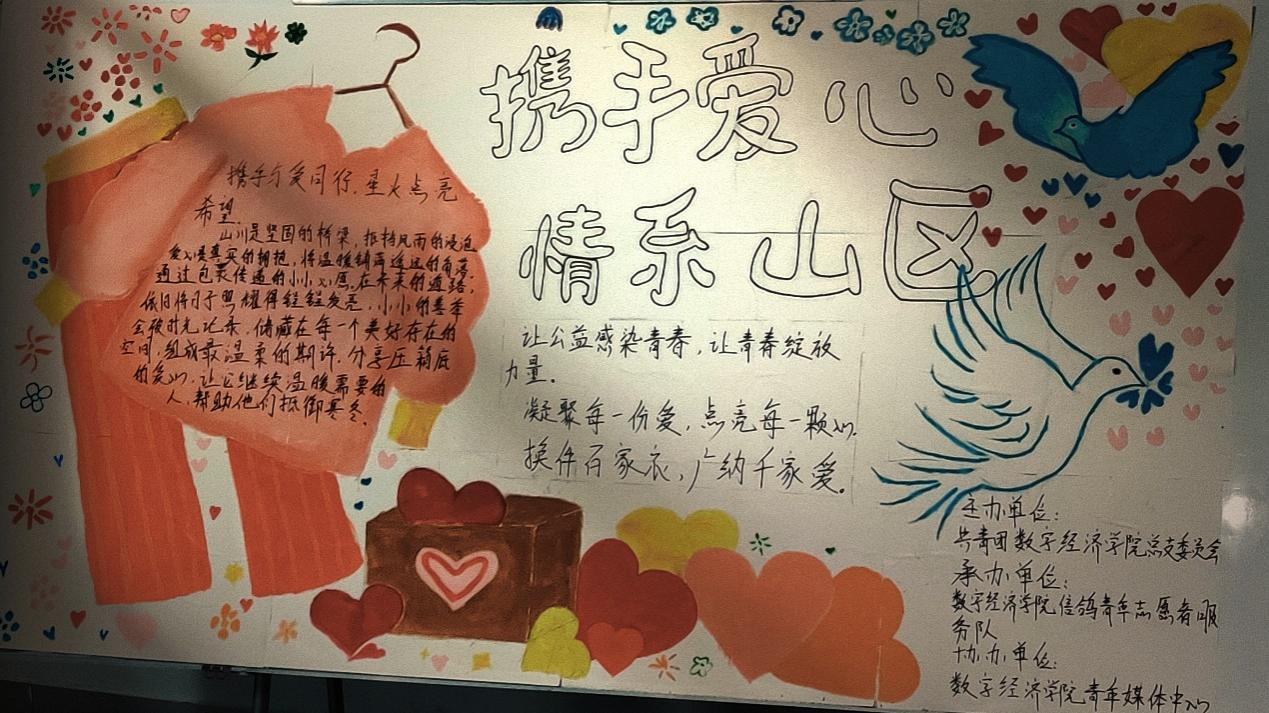 携手爱心
情系山区
携手与爱同行.星火点亮
希望.
山川是坚固的桥梁,抵挡风雨的浸泡
爱心是真实的拥抱,将温暖铺满遥远的角落.
通过包裹传递的小小心愿.在未来的道路,
依旧将日子照耀得轻轻发亮.小小的善举
会被时光记录,储藏在每一个美好存在的
空间,组成最温柔的期许.分享压箱底
的爱心,让它继续温暖需要的
人,帮助他们抵御寒冬.
让公益感染青春,让青春绽放
力量.
凝聚每一份爱,点亮每一颗心.
换件百家衣,广纳千家爱.
主办单位:
共青团数字经济学院总支委员会
承办单位:
数字经济学院信鸽青年志愿者服
务队
协办单位:
数字经济学院青年媒体中心